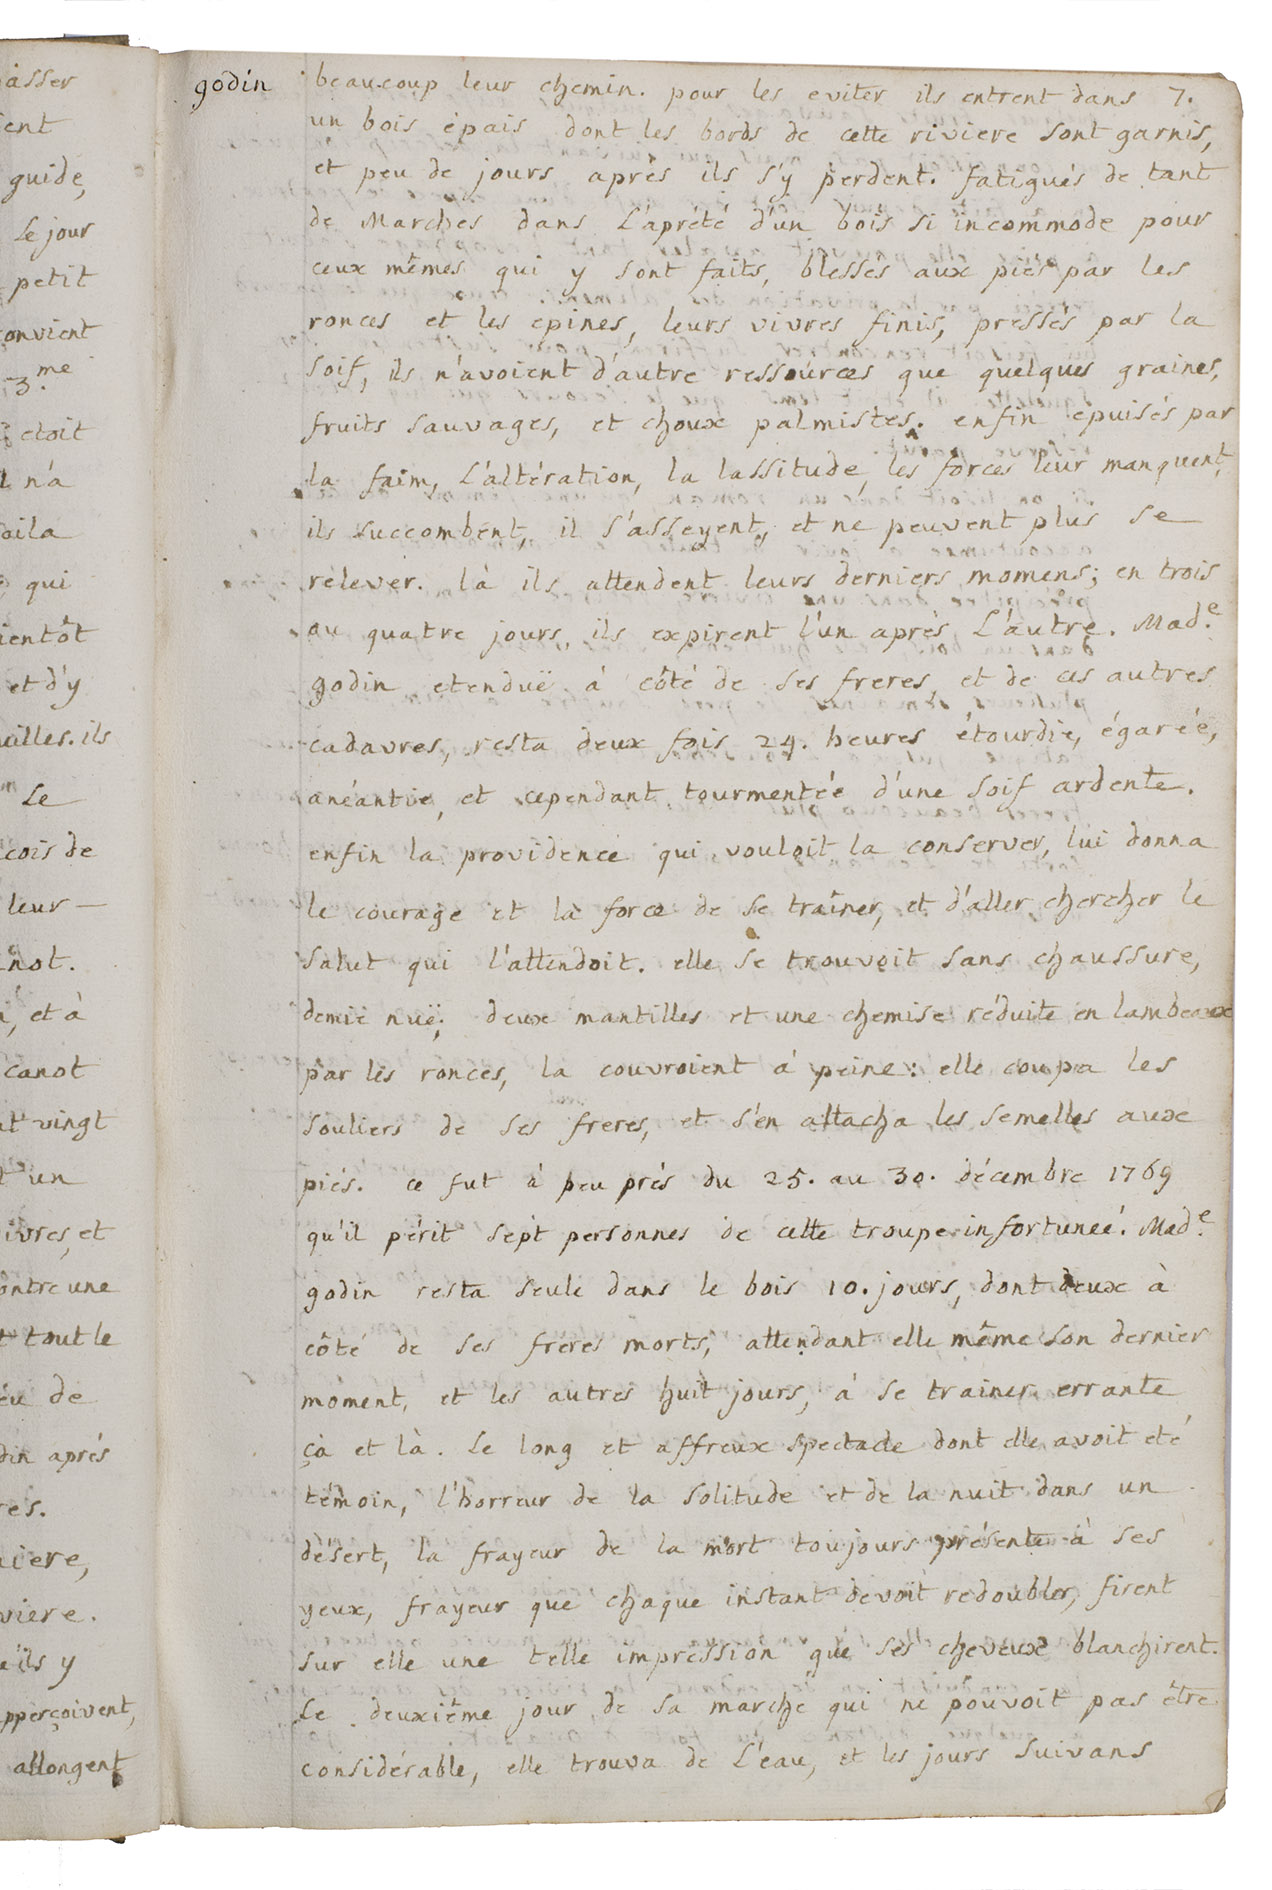 asser
ent
guide,
Le jour
petit
onvient
3.me
etoit
n'a
oila
qui
ientôt
et d'y
uilles. ils
Le
cois de
leur —
not.
, et à
canot
vingt
un
ivres, et
ontre une
tout le
de
din aprés
res.
iere,
viere.
ils y
pperçoivent,
allongent
godin
beaucoup leur chemin. pour les eviter ils entrent dans 7.
un bois épais dont les bords de cette riviere sont garnis,
et peu de jours aprés ils s'y perdent. fatigués de tant
de Marches dans L'apreté d'un bois si incommode pour
ceux mêmes qui y sont faits, blessés aux piés par les
ronces et les epines, leurs vivres finis, pressés par la
soif, ils n'avoient d'autre ressources que quelques graines,
fruits sauvages, et choux palmistes. enfin epuisés par
la faim, L'altération, la lassitude, les forces leur manquent,
ils succombent, il s'asseyent, et ne peuvent plus se
relever. là ils attendent leurs derniers momens; en trois
ou quatre jours, ils expirent l'un aprés L'autre. Mad.e
godin etenduë à côté de ses freres, et de ces autres
cadavres, resta deux fois 24. heures étourdie, égarée,
anéantie, et cependant tourmentée d'une soif ardente.
enfin la providence qui vouloit la conserver, lui donna
le courage et la force de se traîner, et d'aller chercher le
salut qui l'attendoit. elle se trouvoit sans chaussure,
demie nuë; deux mantilles et une chemise réduite en lambeaux
par les ronces, la couvroient à peine: elle coupa les
souliers de ses freres, et s'en attacha les semelles aux
piés. ce fut à peu prés du 25. au 30. décembre 1769
qu'il périt sept personnes de cette troupe infortuneé. Mad.e
godin resta seule dans le bois 10. jours, dont deux à
côté de ses fréres morts, attendant elle même son dernier
moment, et les autres huit jours, à se trainer errante
çà et là. Le long et affreux spectacle dont elle avoit eté
témoin, l'horreur de la solitude et de la nuit dans un
désert, la frayeur de la mort toujours présente à ses
yeux, frayeur que chaque instant devoit redoubler, firent
sur elle une telle impression que ses cheveux blanchirent.
Le deuxiême jour de sa marche qui ne pouvoit pas être
considérable, elle trouva de L'eau, et les jours suivans